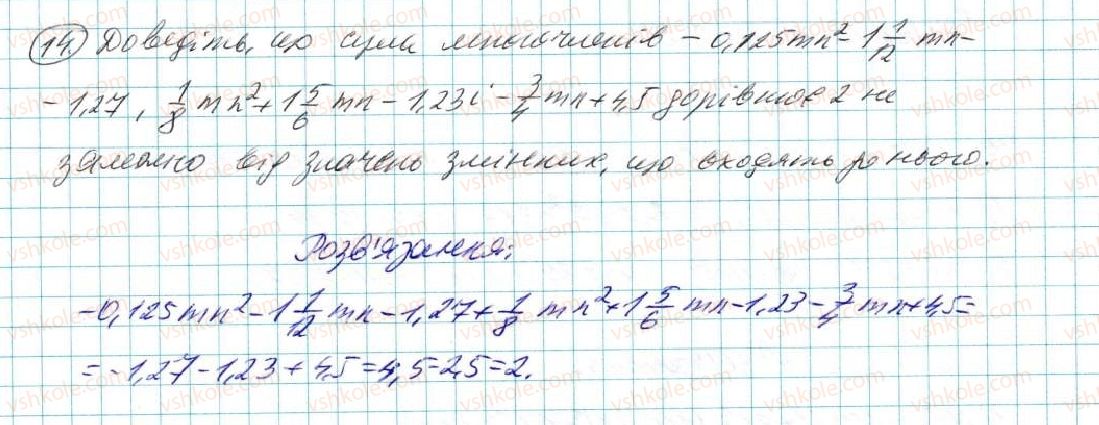 14 Доведіть, що сума многочленів - 0,125mn² - 1 1/12 mn -
- 1,27, 1/8 mn² + 1 5/6 mn - 1,23 і - 3/4 mn + 4,5 дорівнює 2 не
залежно від значень змінних, що входять до нього.
Розв'язання:
-0,125mn² - 1 1/12 mn - 1,27 + 1/8 mn² + 1 5/6 mn - 1,23 - 3/4 mn + 4,5 =
= -1,27 - 1,23 + 4,5 = 4,5 - 2,5 = 2.